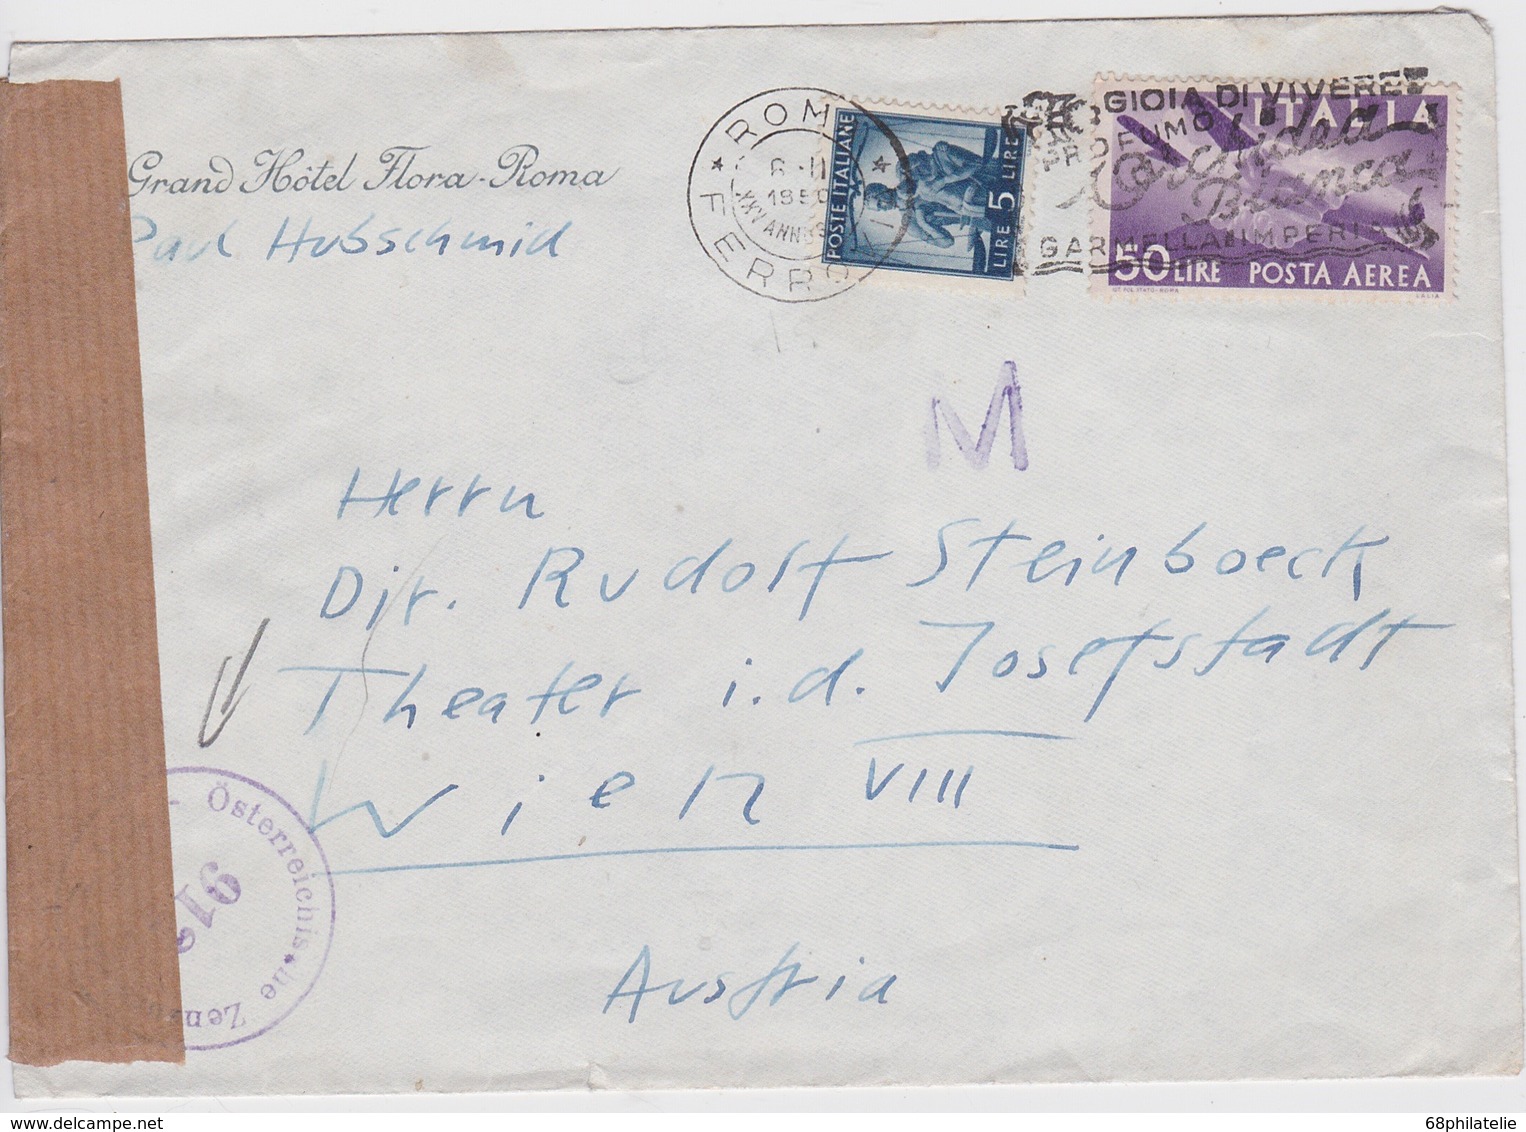 Grand Hôtel Flora-Roma
Paul Hubschmid
ROMA
6-II
1950
FERROVIA
POSTE ITALIANE
LIRE 5 LIRE
GIOIA DI VIVERE
PROFUMO
Orchidea
Bianca
GARMELLA IMPERIA
ITALIA
50 LIRE POSTA AEREA
M
Herrn
Dir. Rudolf Steinboeck
Theater i. d. Josefstadt
Wien VIII
Austria
Österreichische Zens
912
68philatelie